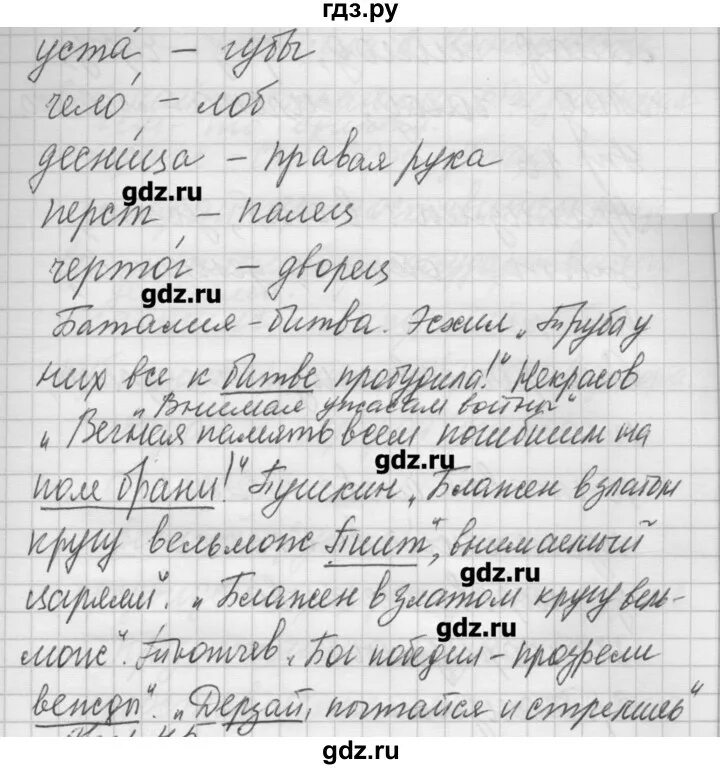 гдз.ру
уста́ – губы
чело́ – лоб
десни́ца – правая рука
gdz.ru
перст – палец
черто́г – дворец
gdz.ru
Баталия – битва. Эсхил „Труба у
них все к битве пробудила!" Некрасов
„Внимая ужасам войны"
„Вечная память всем погибшим на
gdz.ru
поле брани!" Пушкин „Блажен в златом
кругу вельмож Пиит", внимаемый
gdz.ru
царями". „Блажен в златом кругу вель-
gdz.ru
мож". Тютчев „Бог победил – прозрели
вежды". „Дерзай, пытайся и стремись"
gdz.ru